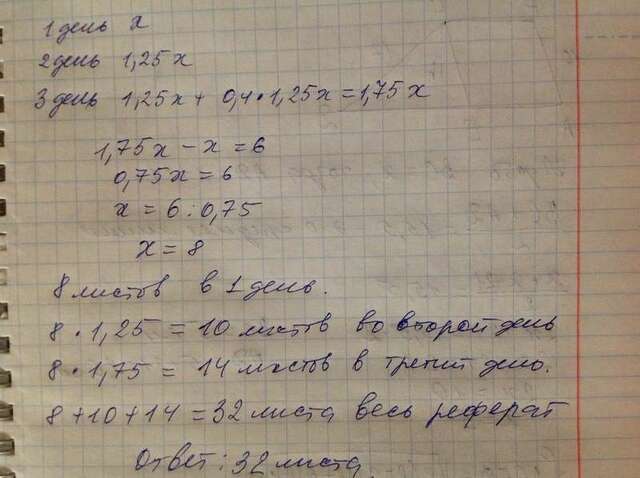 1 день x
2 день 1,25x
3 день 1,25x + 0,4 · 1,25x = 1,75x
1,75x - x = 6
0,75x = 6
x = 6 : 0,75
x = 8
8 листов в 1 день.
8 · 1,25 = 10 листов во второй день
8 · 1,75 = 14 листов в третий день.
8 + 10 + 14 = 32 листа весь реферат
Ответ: 32 листа